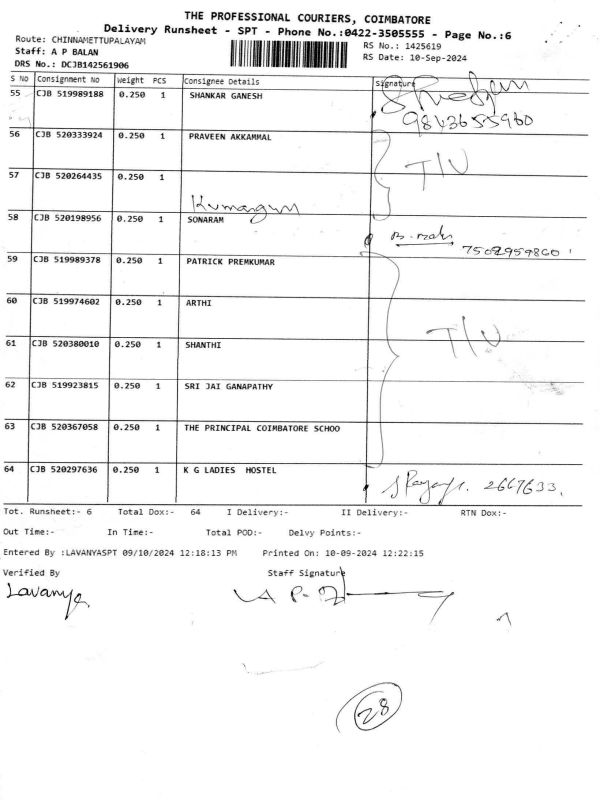 THE PROFESSIONAL COURIERS, COIMBATORE
Delivery Runsheet - SPT - Phone No.:0422-3505555 - Page No.:6
Route: CHINNAMETTUPALAYAM
RS No.: 1425619
Staff: A P BALAN
RS Date: 10-Sep-2024
DRS No.: DCJB142561906
S No Consignment No Weight PCS Consignee Details Signature
55 CJB 519989188 0.250 1 SHANKAR GANESH
9843655960
56 CJB 520333924 0.250 1 PRAVEEN AKKAMMAL
T/U
57 CJB 520264435 0.250 1
Kumargun
58 CJB 520198956 0.250 1 SONARAM
7502959860
59 CJB 519989378 0.250 1 PATRICK PREMKUMAR
60 CJB 519974602 0.250 1 ARTHI
T/U
61 CJB 520380010 0.250 1 SHANTHI
62 CJB 519923815 0.250 1 SRI JAI GANAPATHY
63 CJB 520367058 0.250 1 THE PRINCIPAL COIMBATORE SCHOO
64 CJB 520297636 0.250 1 K G LADIES HOSTEL
2667633.
Tot. Runsheet:- 6 Total Dox:- 64 I Delivery:- II Delivery:- RTN Dox:-
Out Time:- In Time:- Total POD:- Delvy Points:-
Entered By :LAVANYASPT 09/10/2024 12:18:13 PM Printed On: 10-09-2024 12:22:15
Verified By Staff Signature
Lavanya
28